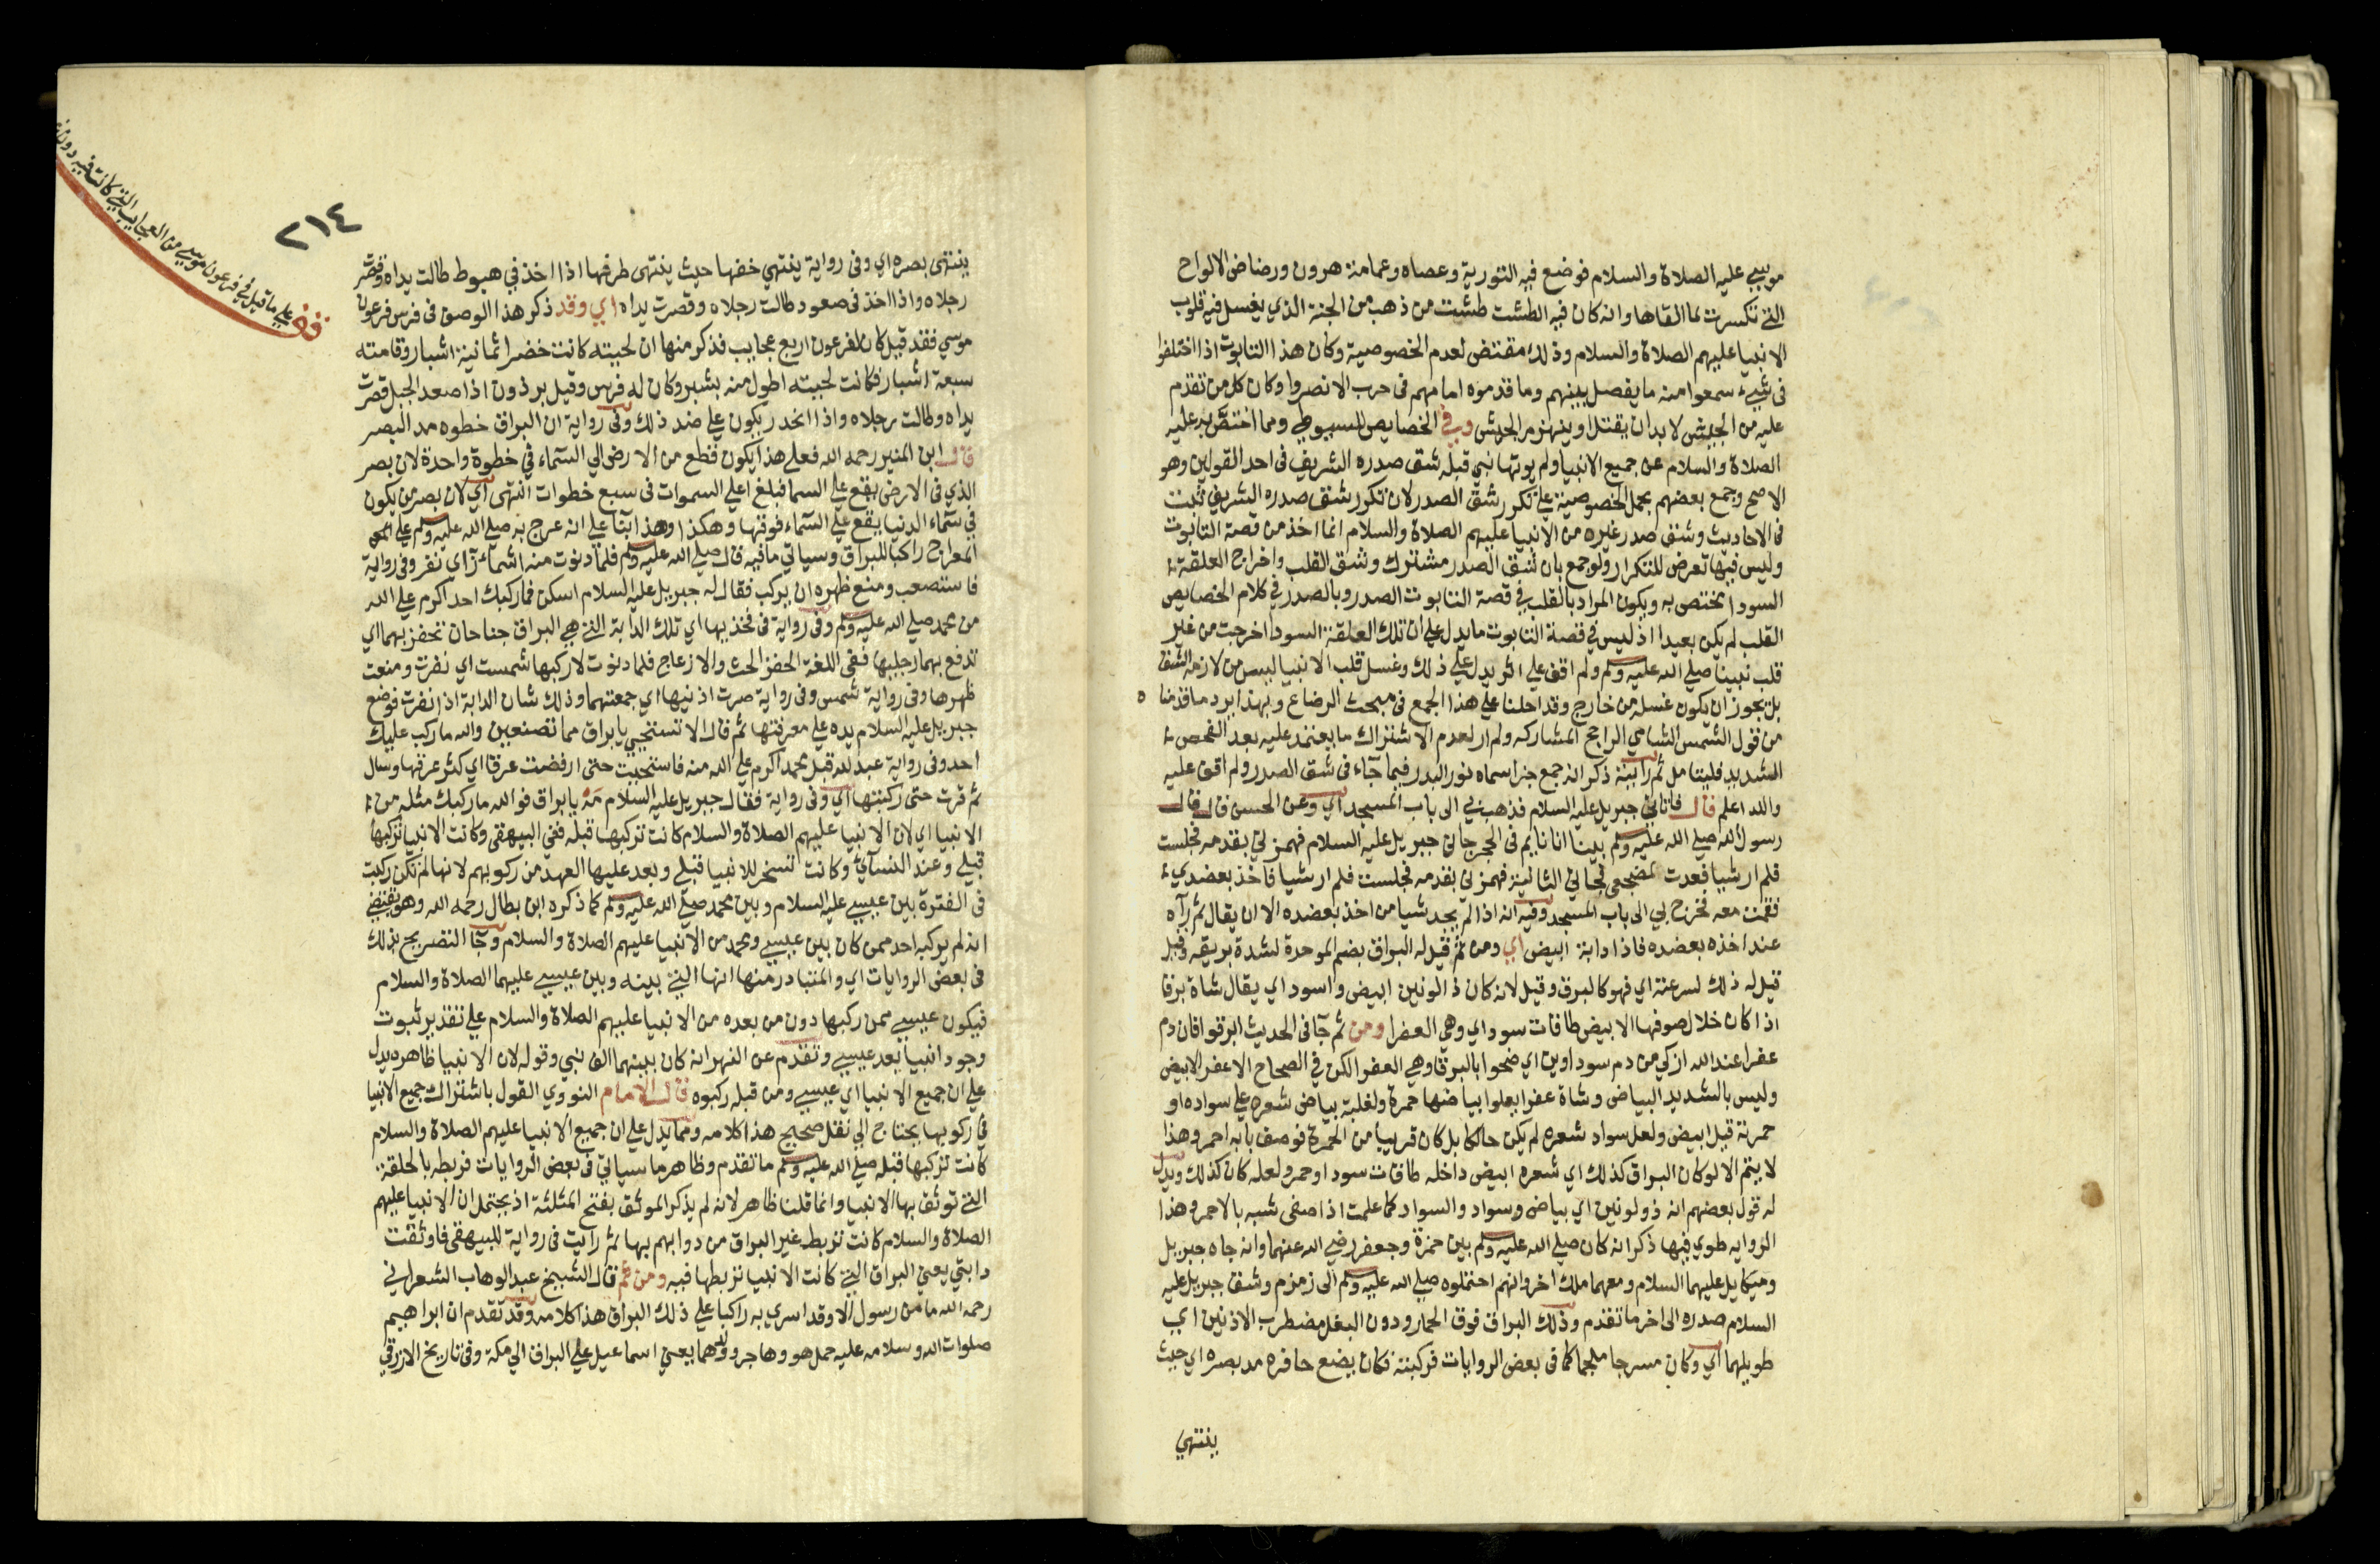 موسي عليه الصلاة والسلام فوضع فيه التورية وعصاه وعمامة هرون ورضاض الالواح
التي تكسرت لما القاها وانه كان فيه الطشت طشت من ذهب من الجنة الذي يغسل فيه قلوب
الانبيا عليهم الصلاة والسلام وذلك مقتض لعدم الخصوصية وكان هذا التابوت اذا اختلفوا
في شيء سمعوا منه ما يفصل بينهم وما قدموه امامهم في حرب الا نصروا وكان كل من تقدم
عليه من الجيش لا بد ان يقتل او ينهزم الجيش وفي الخصايص للسيوطي ومما اختص به عليه
الصلاة والسلام عن جميع الانبيا ولم يوتها نبي قبله شق صدره الشريف في احد القولين وهو
الاصح وجمع بعضهم بحمل الخصوصية علي تكرر شق الصدر لان تكرر شق صدره الشريف ثبت
في الاحاديث وشق صدر غيره من الانبيا عليهم الصلاة والسلام انما اخذ من قصة التابوت
وليس فيها تعرض للتكرار ولو جمع بان شق الصدر مشترك وشق القلب واخراج العلقة
السودا يختص به ويكون المراد بالقلب في قصة التابوت الصدر وبالصدر في كلام الخصايص
القلب لم يكن بعيدا اذ ليس في قصة التابوت ما يدل علي ان تلك العلقة السودا اخرجت من غير
قلب نبينا صلي الله عليه وسلم ولم اقف علي اثر يدل علي ذلك وغسل قلب الانبيا ليس من لازمه الشق
بل يجوز ان يكون غسله من خارج وقد احلنا علي هذا الجمع في مبحث الرضاع وبهذا يرد ما قدمنا
من قول الشمس الشامي الراجح المشاركة ولم ار لعدم الاشتراك ما يعتمد عليه بعد الفحص
الشديد فليتامل ثم رايته ذكر انه جمع جزا سماه نور البدر فيما جآء في شق الصدر ولم اقف عليه
والله اعلم قال فاتاني جبريل عليه السلام فذهب بي الي باب المسجد اي وعن الحسن قال قال
رسول الله صلي الله عليه وسلم بينا انا نايم في الحجر جاني جبريل عليه السلام فهمزني بقدمه فجلست
فلم ار شيا فعدت لمضجعي فجاني الثانية فهمزني بقدمه فجلست فلم ار شيا فاخذ بعضدي
فقمت معه فخرج بي الي باب المسجد وفيه انه اذا لم يجد شيا من اخذ بعضده الا ان يقال ثم رآه
عند اخذه بعضده فاذا دابة ابيض اي ومن ثم قيل له البراق بضم الموحدة لشدة بريقه وقيل
قيل له ذلك لسرعته اي فهو كالبرق وقيل لانه كان ذا لونين ابيض واسود اي يقال شاة برقا
اذا كان خلال صوفها الابيض طاقات سود اي وهي العفرا ومن ثم جآ في الحديث ابرقوا فان دم
عفرا عند الله ازكي من دم سوداوين اي ضحوا بالبرقا وهي العفرا لكن في الصحاح الاعفر الابيض
وليس بالشديد البياض وشاة عفرا يعلوا بياضها حمرة ولغلبة بياض شعره علي سواده او
حمرته قيل ابيض ولعل سواد شعره لم يكن حالكا بل كان قريبا من الحمرة فوصف بانه احمر وهذا
لا يتم الا لو كان البراق كذلك اي شعره ابيض داخله طاقات سود او حمر ولعله كان كذلك ويدل
له قول بعضهم انه ذو لونين اي بياض وسواد والسواد كما علمت اذا صفى شبه بالاحمر وهذا
الرواية طوي فيها ذكر انه كان صلي الله عليه وسلم بين حمزة وجعفر رضي الله عنهما وانه جاه جبريل
وميكايل عليهما السلام ومعهما ملك اخر وانهم احتملوه صلي الله عليه وسلم الي زمزم وشق جبريل عليه
السلام صدره الي اخر ما تقدم وذلك البراق فوق الحمار ودون البغل مضطرب الاذنين اي
طويلهما اي وكان مسرجا ملجما كما في بعض الروايات فركبته فكان يضع حافره مد بصره اي حيث
ينتهي
٢١٤
علي ما قيل في فرعون موسي من العجايب التي كانت فيه
ينتهى بصره اي وفي رواية ينتهي خفها حيث ينتهى طرفها اذا اخذ في هبوط طالت يداه وقصرت
رجلاه واذا اخذ في صعود طالت رجلاه وقصرت يداه اي وقد ذكر هذا الوصف في فرس فرعون
موسي فقد قيل كان لفرعون اربع عجايب فذكر منها ان لحيته كانت خضرا ثمانية اشبار وقامته
سبعة اشبار فكانت لحيته اطول منه بشبر وكان له فرس وقيل برذون اذا صعد الجبل قصرت
يداه وطالت رجلاه واذا انحدر يكون علي ضد ذلك وفي رواية ان البراق خطوه مد البصر
قال ابن المنير رحمه الله فعلي هذا يكون قطع من الارض الي السمآء في خطوة واحدة لان بصر
الذي في الارض يقع علي السما فبلغ اعلي السموات في سبع خطوات انتهى اي لان بصر من يكون
في سمآء الدنيا يقع علي السمآء فوقها وهكذا وهذا بنآ علي انه عرج به صلي الله عليه وسلم علي
المعراج راكبا للبراق وسياتي ما فيه قال صلي الله عليه وسلم فلما دنوت منه اشمأز اي نفر وفي رواية
فاستصعب ومنع ظهره ان يركب فقال له جبريل عليه السلام اسكن فما ركبك احد اكرم علي الله
من محمد صلي الله عليه وسلم وفي رواية في فخذيها اي تلك الدابة التي هي البراق جناحان تحفز بهما اي
تدفع بهما رجليها ففي اللغة الحفز الحث والازعاج فلما دنوت لاركبها شمست اي نفرت ومنعت
ظهرها وفي رواية شمس وفي رواية صرت اذنيها اي جمعتهما وذلك شان الدابة اذا نفرت فوضع
جبريل عليه السلام يده علي معرفتها ثم قال الا تستحيي يا براق مما تصنعين والله ما ركب عليك
احد وفي رواية عبد لله قبل محمد اكرم علي الله منه فاستحييت حتي ارفضت عرقا اي كثر عرقها وسال
ثم قرت حتي ركبتها اي وفي رواية فقال جبريل عليه السلام مه يا براق فوالله ما ركبك مثله من
الانبيا اي لان الانبيا عليهم الصلاة والسلام كانت تركبها قبله ففي البيهقي وكانت الانبيا تركبها
قبلي وعند النسآي وكانت تسخر للانبيا قبلي وبعد عليها العهد من ركوبهم لانها لم تكن ركبت
في الفترة بين عيسي عليه السلام وبين محمد صلي الله عليه وسلم كما ذكره ابن بطال رحمه الله وهو يقتضي
انه لم يركبه احد ممن كان بين عيسي ومحمد من الانبيا عليهم الصلاة والسلام وجآ التصريح بذلك
في بعض الروايات اي والمتبادر منها انها التي بينه وبين عيسي عليهما الصلاة والسلام
فيكون عيسي ممن ركبها دون من بعده من الانبيا عليهم الصلاة والسلام علي تقدير ثبوت
وجود انبيا بعد عيسي وتقدم عن النهر انه كان بينهما الف نبي وقوله لان الانبيا ظاهره يدل
علي ان جميع الانبيا اي عيسي ومن قبله ركبوه قال الامام النووي القول باشتراك جميع الانبيا
في ركوبها يحتاج الي نقل صحيح هذا كلامه ومما يدل علي ان جميع الانبيا عليهم الصلاة والسلام
كانت تركبها قبله صلي الله عليه وسلم ما تقدم وظاهر ما سياتي في بعض الروايات فربطه بالحلقة
التي توثق بها الانبيا وانما قلنا ظاهر لانه لم يذكر الموثق بفتح المثلثة اذ يحتمل ان الانبيا عليهم
الصلاة والسلام كانت تربط غير البراق من دوابهم بها ثم رايت في رواية للبيهقي فاوثقت
دابتي يعني البراق التي كانت الانبيا تربطها فيه ومن ثم قال الشيخ عبد الوهاب الشعراني
رحمه الله ما من رسول الا وقد اسري به راكبا علي ذلك البراق هذا كلامه وقد تقدم ان ابراهيم
صلوات الله وسلامه عليه حمل هو وهاجر وولدهما يعني اسماعيل علي البراق الي مكة وفي تاريخ الازرقي